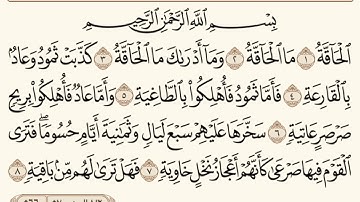 بِسْمِ اللَّهِ الرَّحْمَٰنِ الرَّحِيمِ
الْحَاقَّةُ ١ مَا الْحَاقَّةُ ٢ وَمَا أَدْرَاكَ مَا الْحَاقَّةُ ٣ كَذَّبَتْ ثَمُودُ وَعَادٌ
بِالْقَارِعَةِ ٤ فَأَمَّا ثَمُودُ فَأُهْلِكُوا بِالطَّاغِيَةِ ٥ وَأَمَّا عَادٌ فَأُهْلِكُوا بِرِيحٍ
صَرْصَرٍ عَاتِيَةٍ ٦ سَخَّرَهَا عَلَيْهِمْ سَبْعَ لَيَالٍ وَثَمَانِيَةَ أَيَّامٍ حُسُومًا فَتَرَى
الْقَوْمَ فِيهَا صَرْعَىٰ كَأَنَّهُمْ أَعْجَازُ نَخْلٍ خَاوِيَةٍ ٧ فَهَلْ تَرَىٰ لَهُم مِّن بَاقِيَةٍ ٨